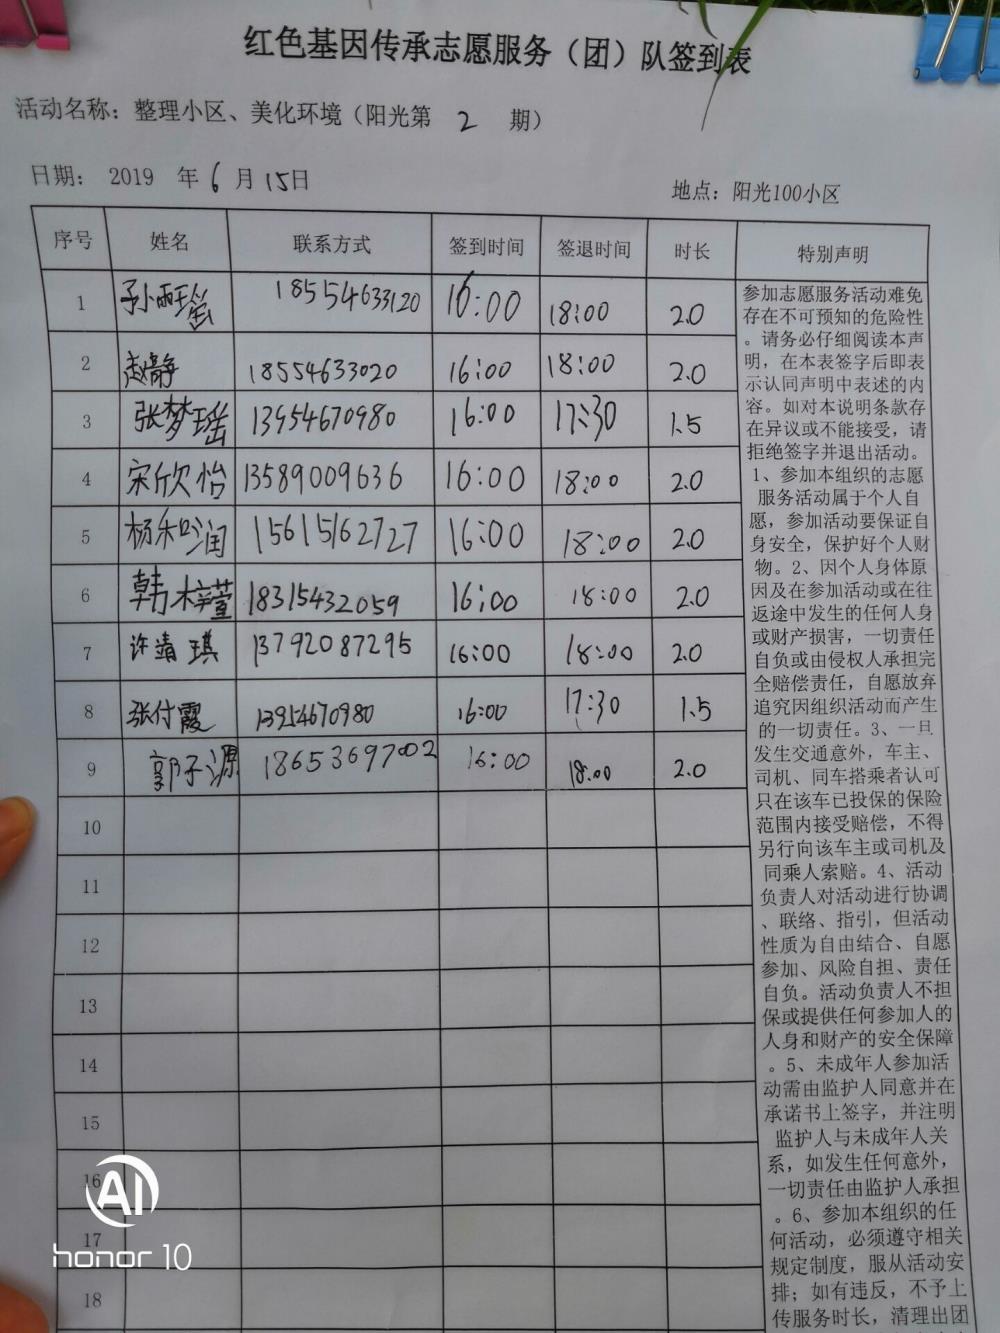 红色基因传承志愿服务（团）队签到表
活动名称：整理小区、美化环境（阳光第 2 期）
日期： 2019 年 6 月 15日
地点：阳光100小区
序号 姓名 联系方式 签到时间 签退时间 时长 特别声明
1 孙雨瑶 18554633120 16:00 18:00 2.0
2 赵静 18554633020 16:00 18:00 2.0
3 张梦瑶 13954670980 16:00 17:30 1.5
4 宋欣怡 13589009636 16:00 18:00 2.0
5 杨 润 15615162727 16:00 18:00 2.0
6 韩梓萱 18315432059 16:00 18:00 2.0
7 许靖琪 13792087295 16:00 18:00 2.0
8 张付霞 13954670980 16:00 17:30 1.5
9 郭子源 18653697002 16:00 18:00 2.0
10
11
12
13
14
15
16
17
18
参加志愿服务活动难免
存在不可预知的危险性
。请务必仔细阅读本声
明，在本表签字后即表
示认同声明中表述的内
容。如对本说明条款存
在异议或不能接受，请
拒绝签字并退出活动。
1、参加本组织的志愿
服务活动属于个人自
愿，参加活动要保证自
身安全，保护好个人财
物。2、因个人身体原
因及在参加活动或在往
返途中发生的任何人身
或财产损害，一切责任
自负或由侵权人承担完
全赔偿责任，自愿放弃
追究因组织活动而产生
的一切责任。3、一旦
发生交通意外，车主、
司机、同车搭乘者认可
只在该车已投保的保险
范围内接受赔偿，不得
另行向该车主或司机及
同乘人索赔。4、活动
负责人对活动进行协调
、联络、指引，但活动
性质为自由结合、自愿
参加、风险自担、责任
自负。活动负责人不担
保或提供任何参加人的
人身和财产的安全保障
。5、未成年人参加活
动需由监护人同意并在
承诺书上签字，并注明
监护人与未成年人关
系，如发生任何意外，
一切责任由监护人承担
。6、参加本组织的任
何活动，必须遵守相关
规定制度，服从活动安
排；如有违反，不予上
传服务时长，清理出团
AI
honor 10